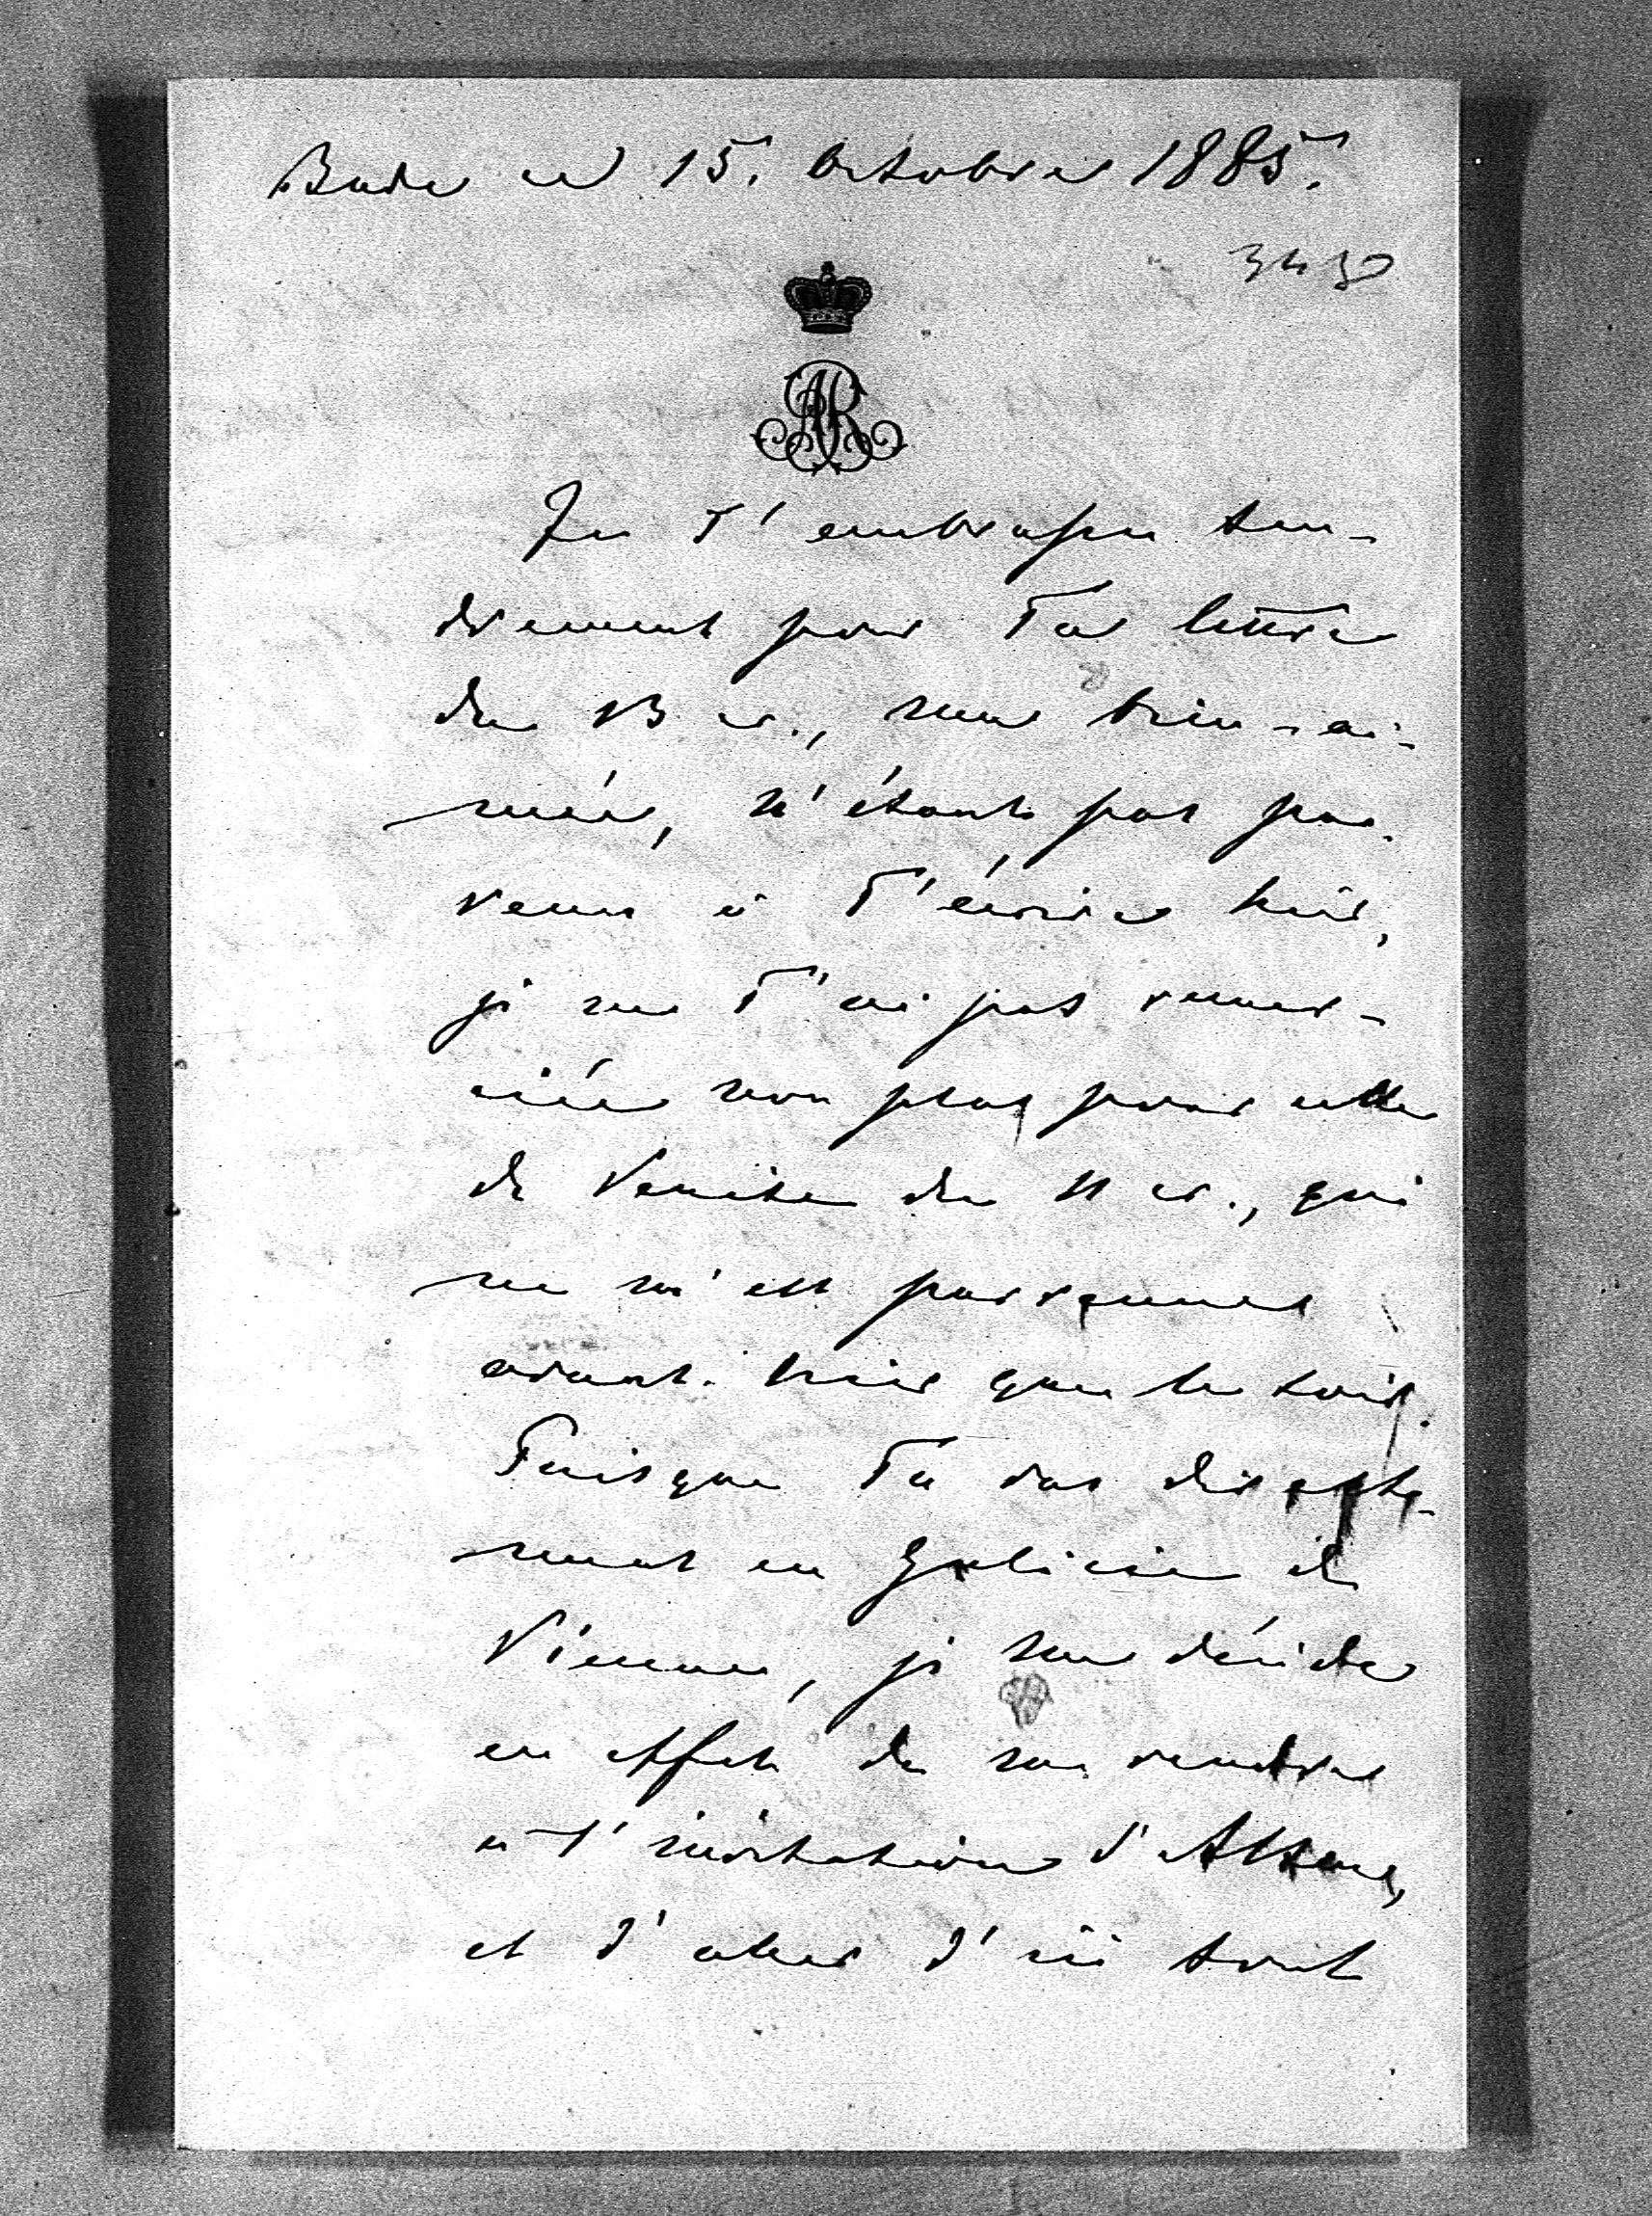 Bade ce 15. Octobre 1885.
3430
AR
Je T'embrasse ten-
drement pour Ta lettre
du 13 cr., ma bien-ai-
mée, n'étant pas par-
venu à T'écrire hier,
je ne T'ai pas remer-
ciée non plus pour celle
de Venise du 11 cr., qui
ne m'est parvenue
avant hier que le soir.
Puisque Tu vas directe-
ment en Galicie de
Vienne, je me décide
en effet de me rendre
à l'invitation d'Altona,
et d'aller d'ici tout